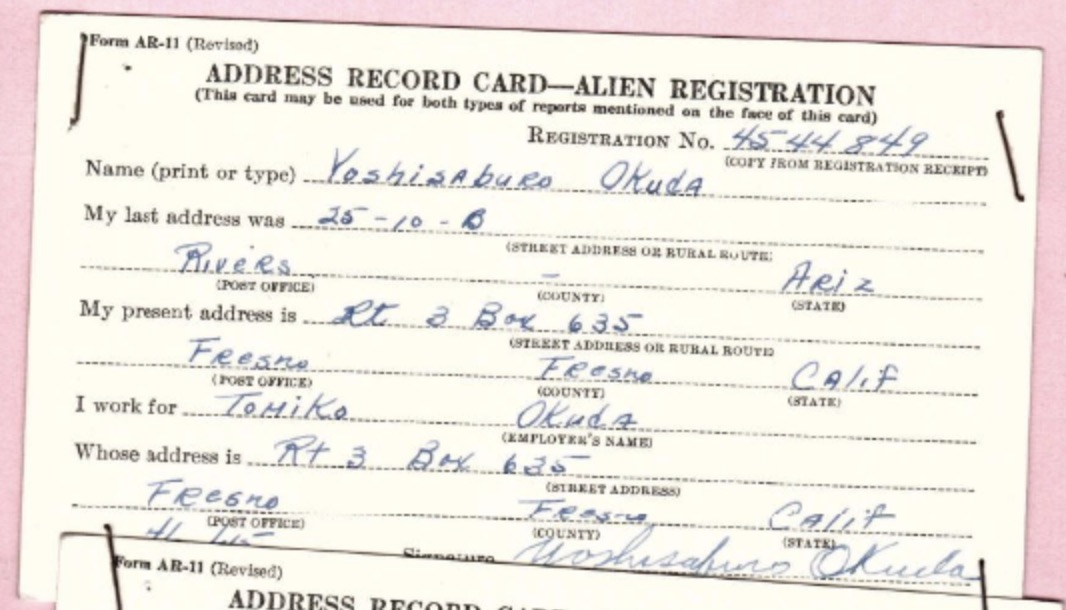 Form AR-11 (Revised)
ADDRESS RECORD CARD—ALIEN REGISTRATION
(This card may be used for both types of reports mentioned on the face of this card)
REGISTRATION No. 4544849
(COPY FROM REGISTRATION RECEIPT)
Name (print or type) Yoshisaburo Okuda
My last address was 25-10-B
(STREET ADDRESS OR RURAL ROUTE)
Rivers - Ariz
(POST OFFICE) (COUNTY) (STATE)
My present address is Rt 3 Box 635
(STREET ADDRESS OR RURAL ROUTE)
Fresno Fresno Calif
(POST OFFICE) (COUNTY) (STATE)
I work for Tomiko Okuda
(EMPLOYER'S NAME)
Whose address is Rt 3 Box 635
(STREET ADDRESS)
Fresno Fresno Calif
(POST OFFICE) (COUNTY) (STATE)
Signature Yoshisaburo Okuda
Form AR-11 (Revised)
ADDRESS RECORD